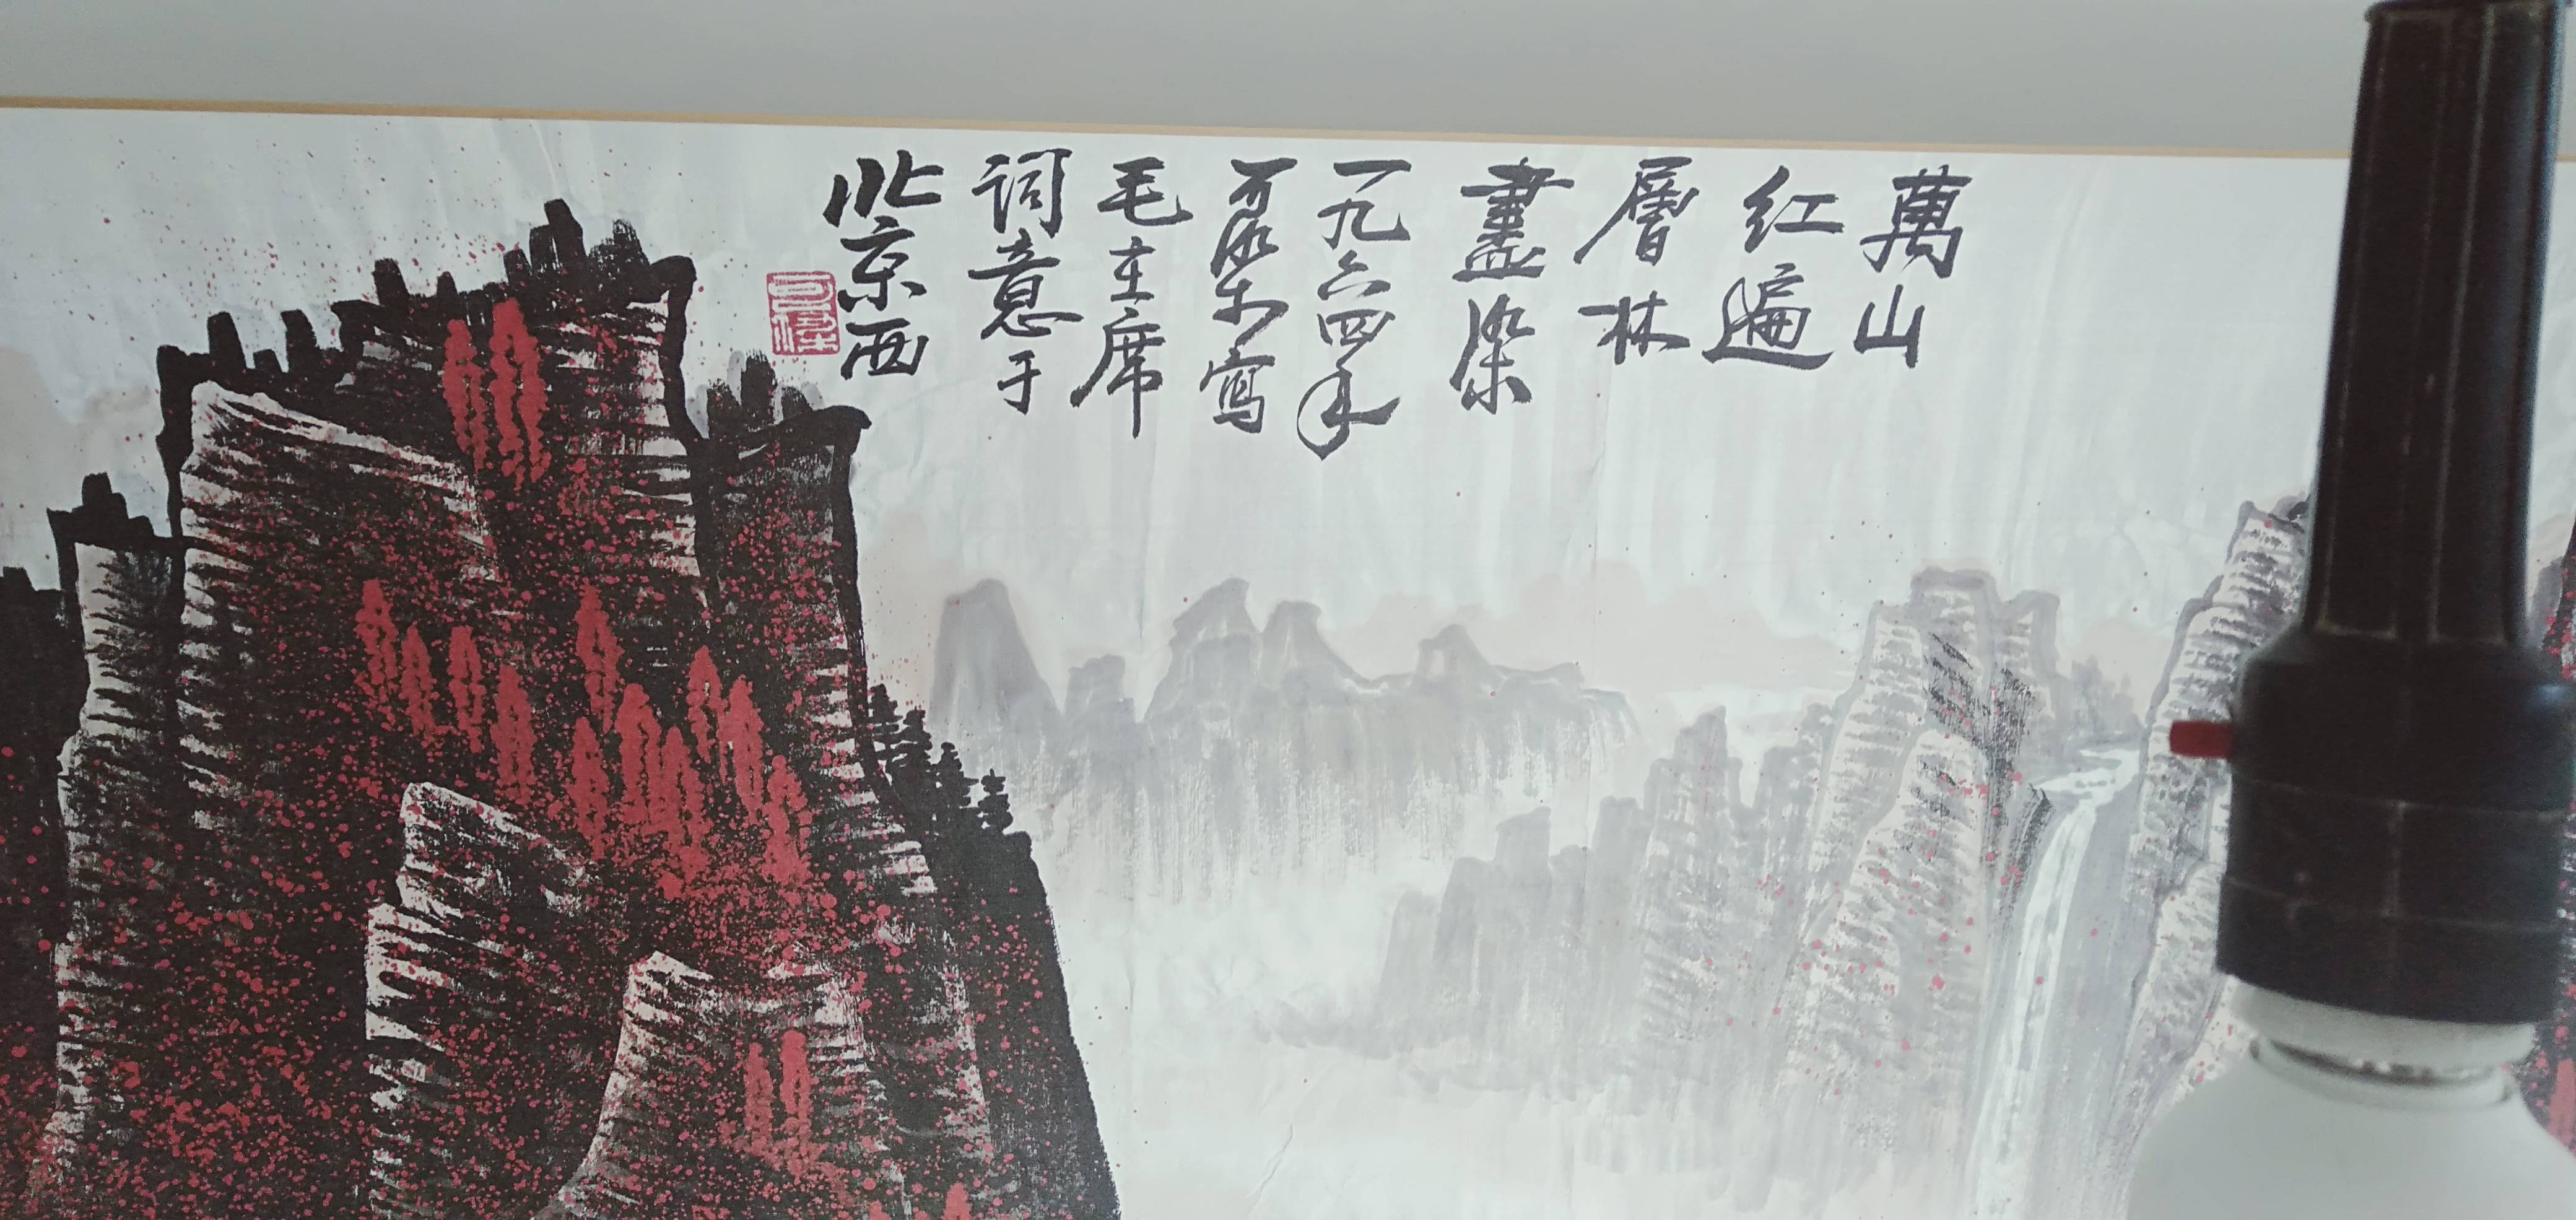 萬山
红遍
層林
盡染
一九六四年
可染寫
毛主席
词意于
北京西
可染